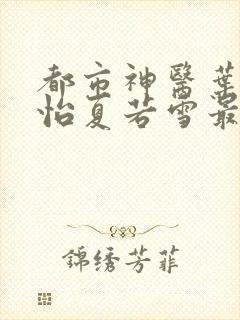 都市神醫葉
怡夏若雪最
錦绣芳菲